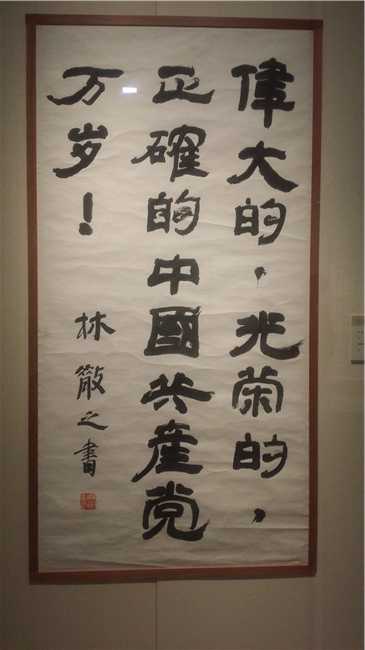 偉大的，光荣的，
正確的中國共産党
万岁！
林散之書